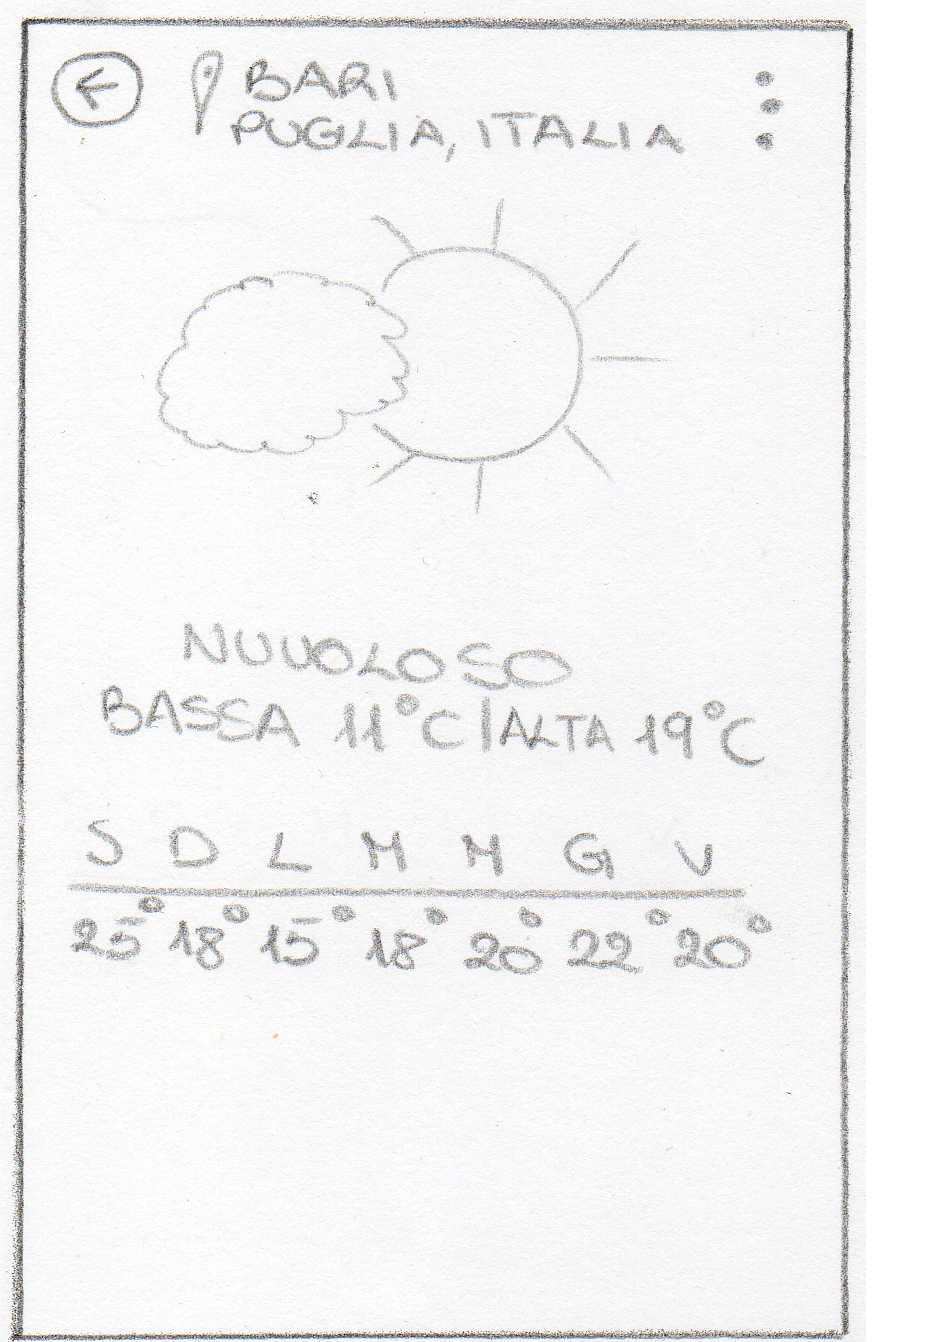 BARI
PUGLIA, ITALIA
NUVOLOSO
BASSA 11°C|ALTA 19°C
S D L M M G V
25° 18° 15° 18° 20° 22° 20°